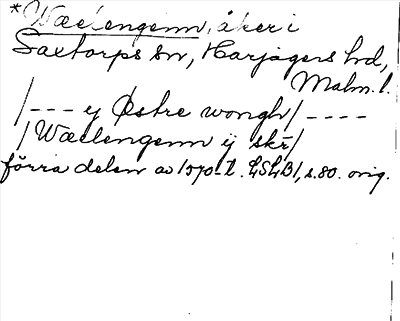 *Wædengenn, åker i
Saxtorps sn, Harjagers hd,
Malm. l.
/--- ej Østre wongh/----
/Wædengenn ij skr/
förra delen av 1570-t. LSLB1, s.80. orig.